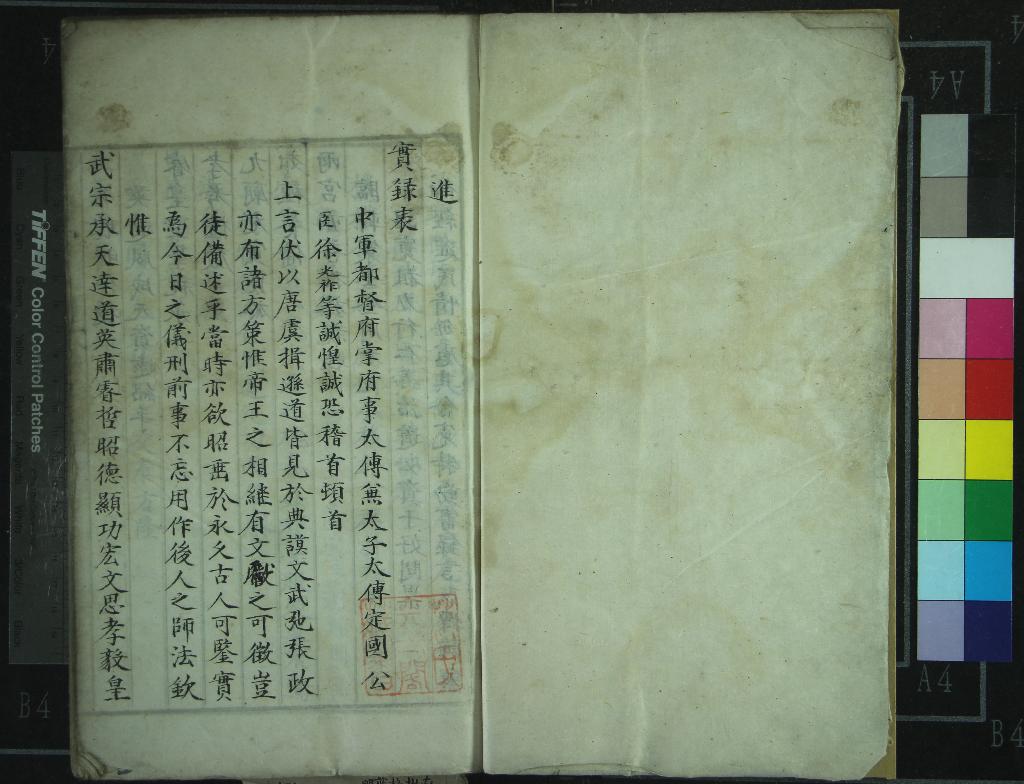 進
實録表
中軍都督府掌府事太傅兼太子太傅定國公
臣徐光祚等誠惶誠恐稽首頓首
上言伏以唐虞揖遜道皆見於典謨文武弛張政
亦布諸方策惟帝王之相繼有文獻之可徵豈
徒備述乎當時亦欲昭垂於永久古人可鑒實
為今日之儀刑前事不忘用作後人之師法欽
惟
武宗承天達道英肅睿哲昭德顯功宏文思孝毅皇
TIFFEN Color Control Patches
A4
B4
A4
B4